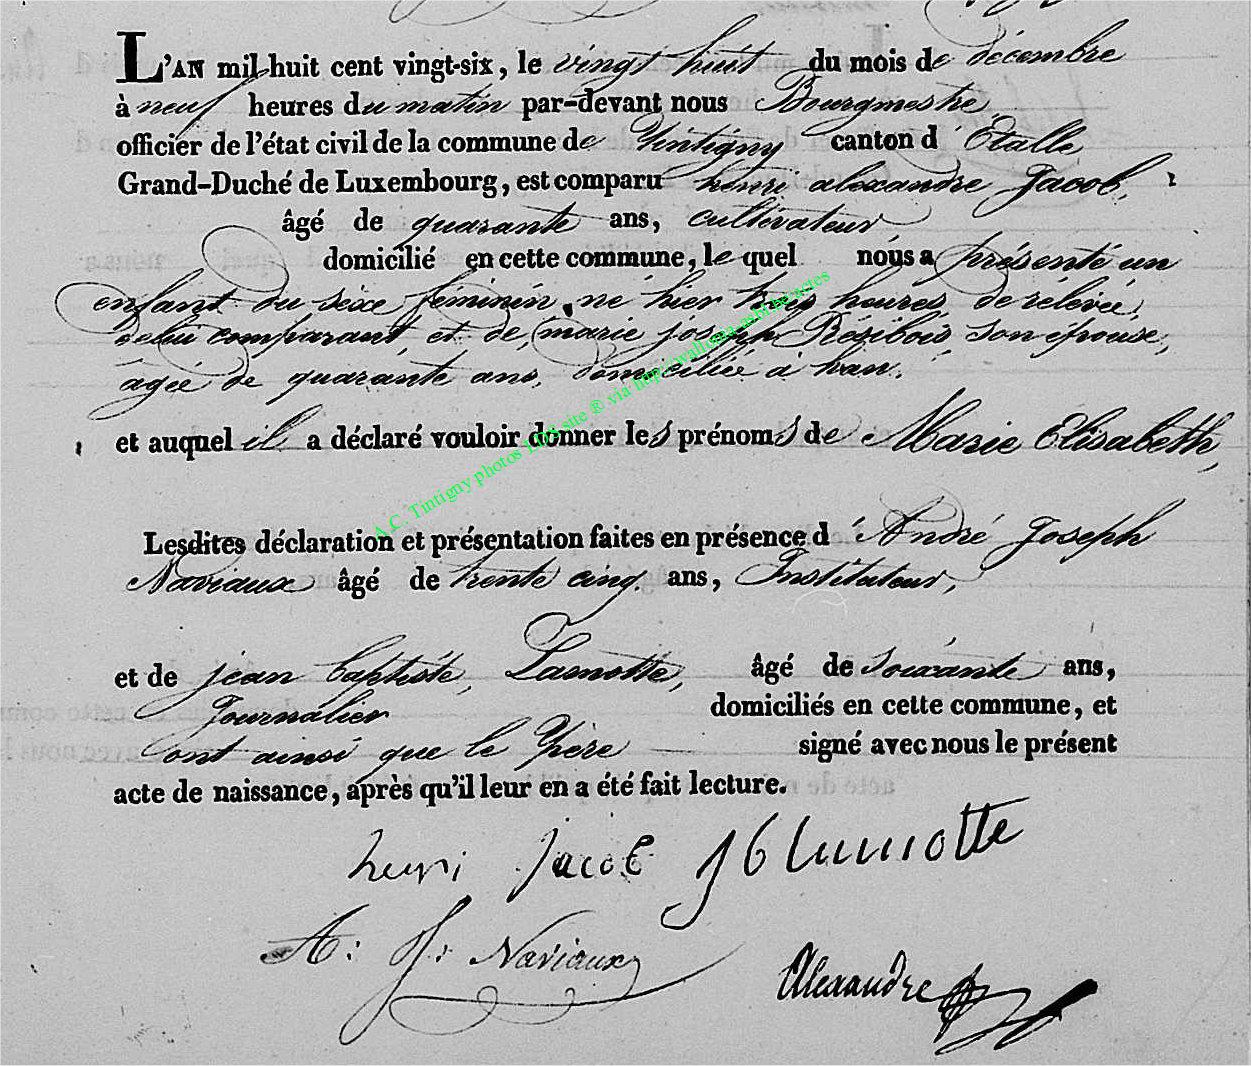 L'AN mil huit cent vingt-six, le vingt huit du mois de décembre
à neuf heures du matin par-devant nous Bourgmestre
officier de l'état civil de la commune de Tintigny canton d'Etalle
Grand-Duché de Luxembourg, est comparu henri alexandre Jacob,
âgé de quarante ans, cultivateur,
domicilié en cette commune, le quel nous a présenté un
enfant du sèxe féminin, né hier trois heures de rélévée,
de lui comparant, et de, marie joseph Résibois son épouse,
âgée de quarante ans, domiciliée à han.
et auquel il a déclaré vouloir donner les prénoms de Marie Elisabeth,
A.C. Tintigny photos LDS site ® via http://wallonia-asbl.be/actes
Lesdites déclaration et présentation faites en présence d'André Joseph
Naviaux âgé de trente cinq ans, Instituteur,
et de jean baptiste, Lamotte, âgé de soixante ans,
Journalier domiciliés en cette commune, et
ont ainsi que le Père signé avec nous le présent
acte de naissance, après qu'il leur en a été fait lecture.
henri jacob J b lamotte
A: J: Naviaux
Alexandre